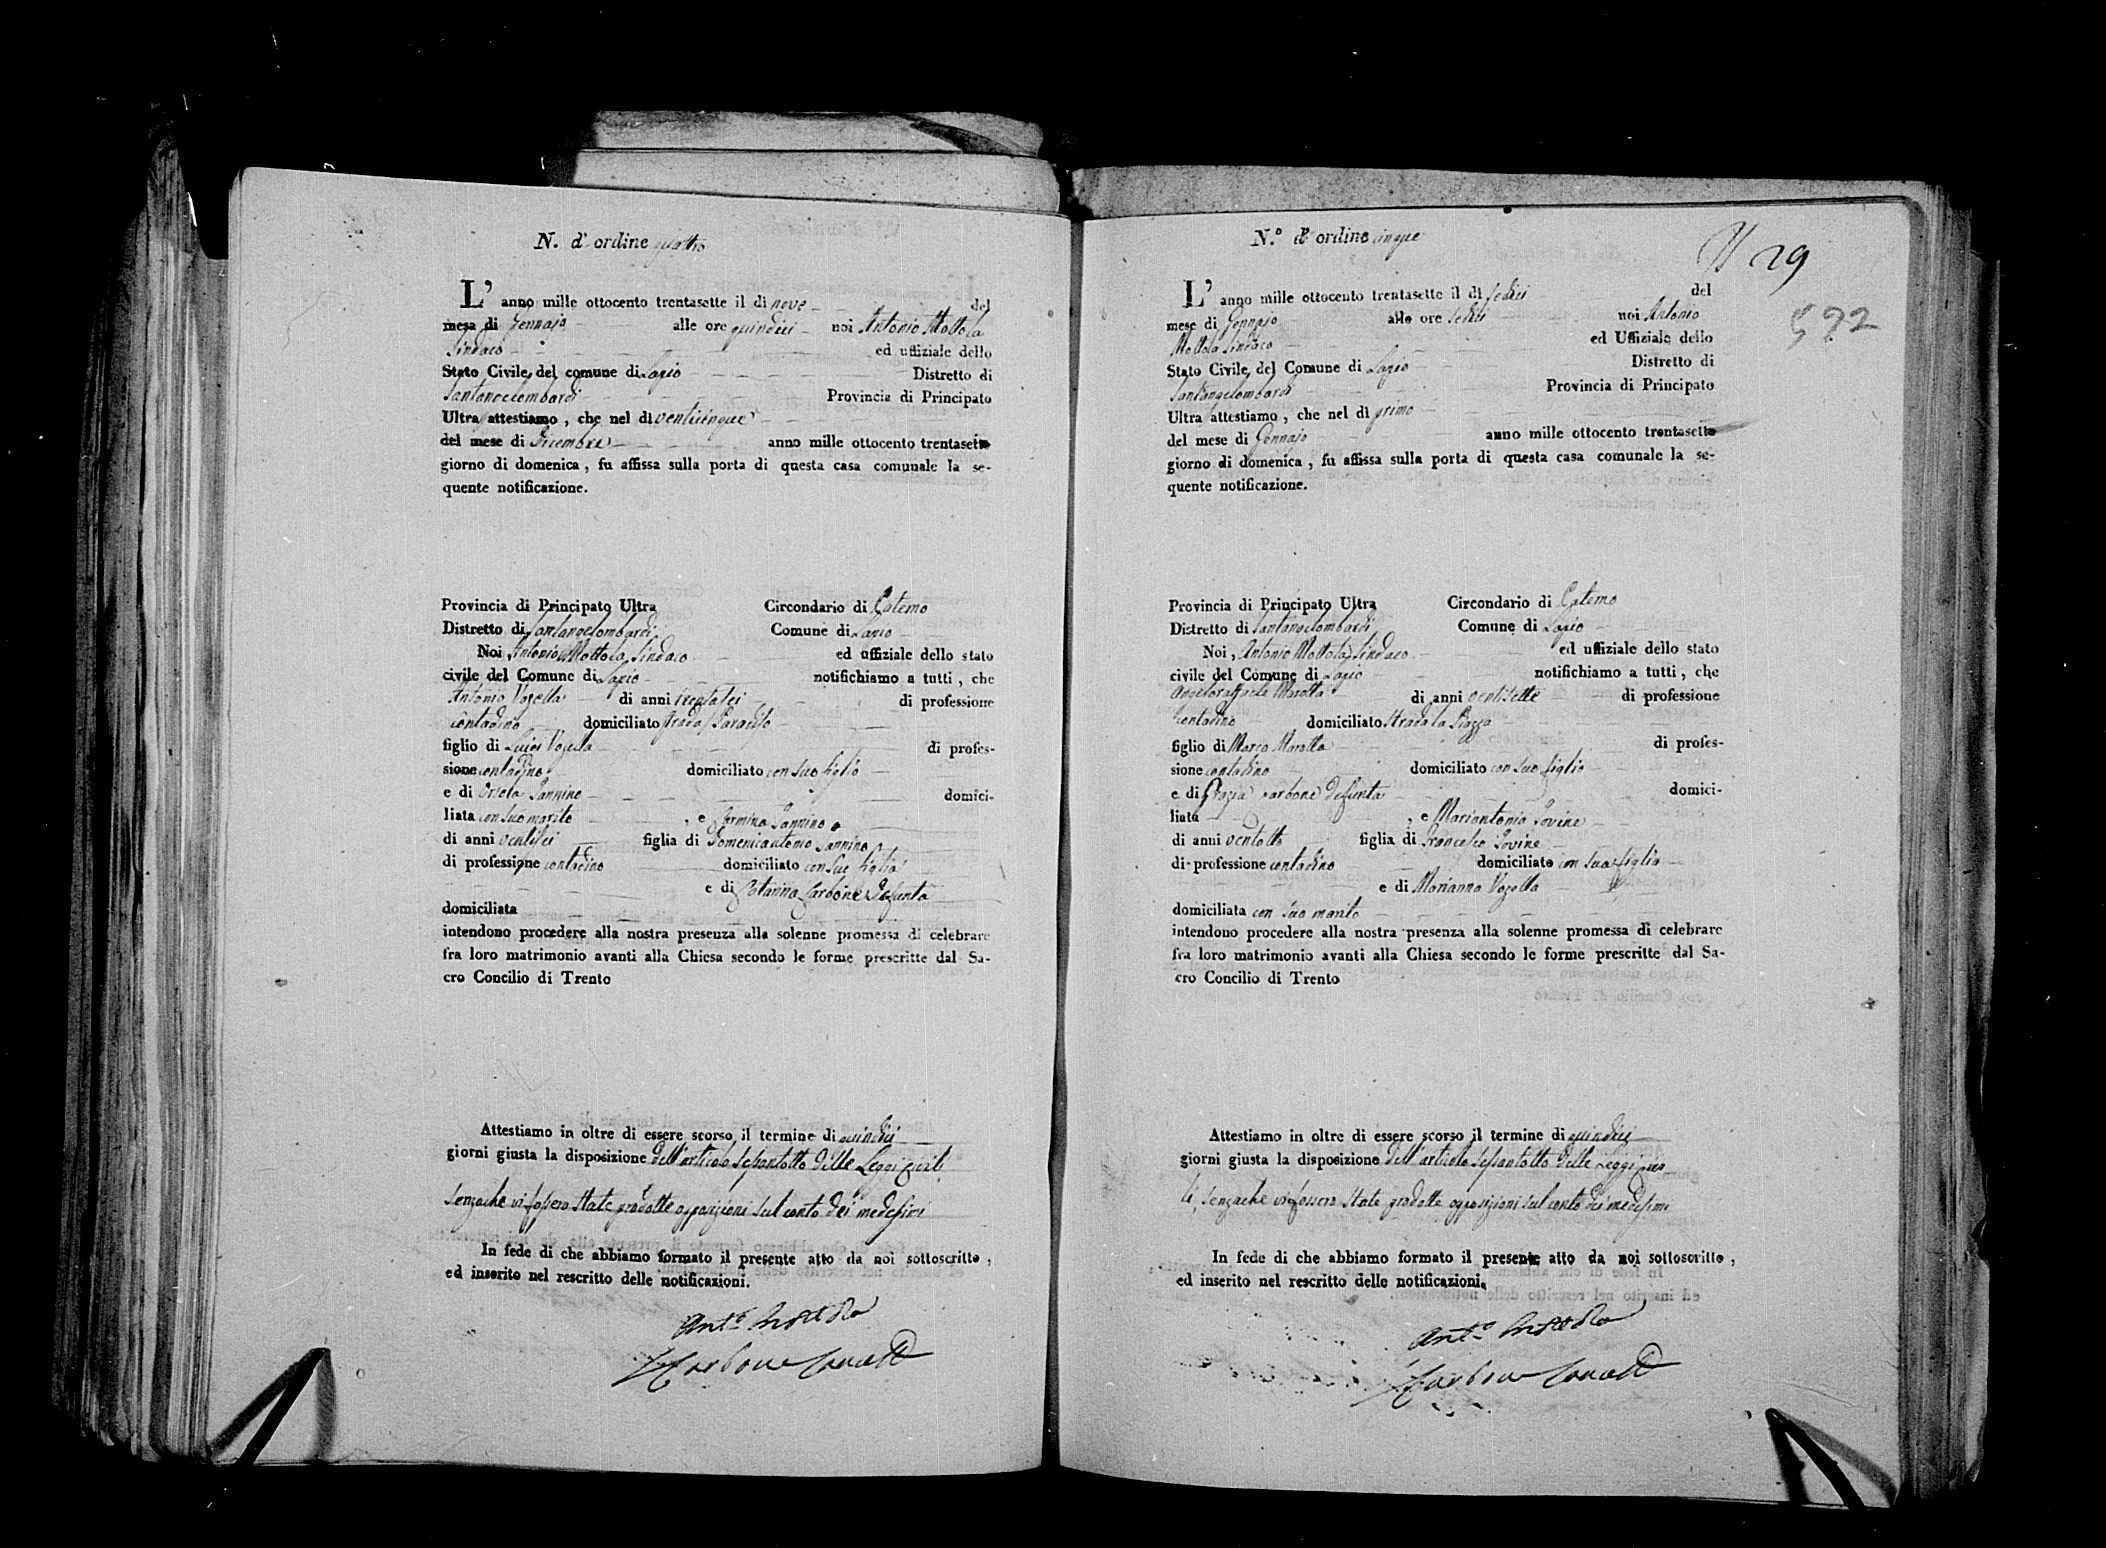 N. d'ordine quattro
L' anno mille ottocento trentasette il dì nove del
mese di Gennajo alle ore quindici noi Antonio Mottola
Sindaco ed uffiziale dello
Stato Civile del comune di Lapio Distretto di
Santangelombardi Provincia di Principato
Ultra attestiamo, che nel dì venticinque
del mese di Dicembre anno mille ottocento trentasette
giorno di domenica, fu affissa sulla porta di questa casa comunale la se-
quente notificazione.
Provincia di Principato Ultra Circondario di
Distretto di Santangelombardi Comune di Lapio
Noi Antonio Mottola Sindaco ed uffiziale dello stato
civile del Comune di Lapio notifichiamo a tutti, che
Antonio Vozella di anni trentasei di professione
contadino domiciliato strada
figlio di Luigi Vozella di profes-
sione contadino domiciliato con suo figlio
e di Orsola Jannino domici-
liata con suo marito, e Carmina Jannino
di anni ventisei figlia di Domenicantonio Jannino
di professione contadino domiciliato con sua figlia
e di Catarina Carbone defunta
domiciliata
intendono procedere alla nostra presenza alla solenne promessa di celebrare
fra loro matrimonio avanti alla Chiesa secondo le forme prescritte dal Sa-
cro Concilio di Trento
Attestiamo in oltre di essere scorso il termine di quindici
giorni giusta la disposizione dell'articolo sessantotto delle Leggi civili
senzache vi fossero state prodotte opposizioni sul conto dei medesimi
In fede di che abbiamo formato il presente atto da noi sottoscritto,
ed inserito nel rescritto delle notificazioni.
Ant.o Mottola
Carbone
N.º d' ordine cinque
29
522
L' anno mille ottocento trentasette il dì sedici del
mese di Gennajo alle ore sedici noi Antonio
Mottola Sindaco ed Uffiziale dello
Stato Civile del Comune di Lapio Distretto di
Santangelombardi Provincia di Principato
Ultra attestiamo, che nel dì primo
del mese di Gennajo anno mille ottocento trentasette
giorno di domenica, fu affissa sulla porta di questa casa comunale la se-
quente notificazione.
Provincia di Principato Ultra Circondario di
Distretto di Santangelombardi Comune di Lapio
Noi, Antonio Mottola Sindaco ed uffiziale dello stato
civile del Comune di Lapio notifichiamo a tutti, che
Angeloraffaele Marotta di anni ventisette di professione
contadino domiciliato Strada la Piazza
figlio di Marco Marotta di profes-
sione contadino domiciliato con suo figlio
e di Grazia Carbone defunta domici-
liata, e Mariantonia Jovine
di anni ventotto figlia di Francesco Jovine
di professione contadino domiciliato con sua figlia
e di Marianna Vozella
domiciliata con suo marito
intendono procedere alla nostra presenza alla solenne promessa di celebrare
fra loro matrimonio avanti alla Chiesa secondo le forme prescritte dal Sa-
cro Concilio di Trento
Attestiamo in oltre di essere scorso il termine di quindici
giorni giusta la disposizione dell'articolo sessantotto delle Leggi civi-
li, senzache vi fossero state prodotte opposizioni sul conto dei medesimi
In fede di che abbiamo formato il presente atto da noi sottoscritto,
ed inserito nel rescritto delle notificazioni.
Ant.o Mottola
Carbone